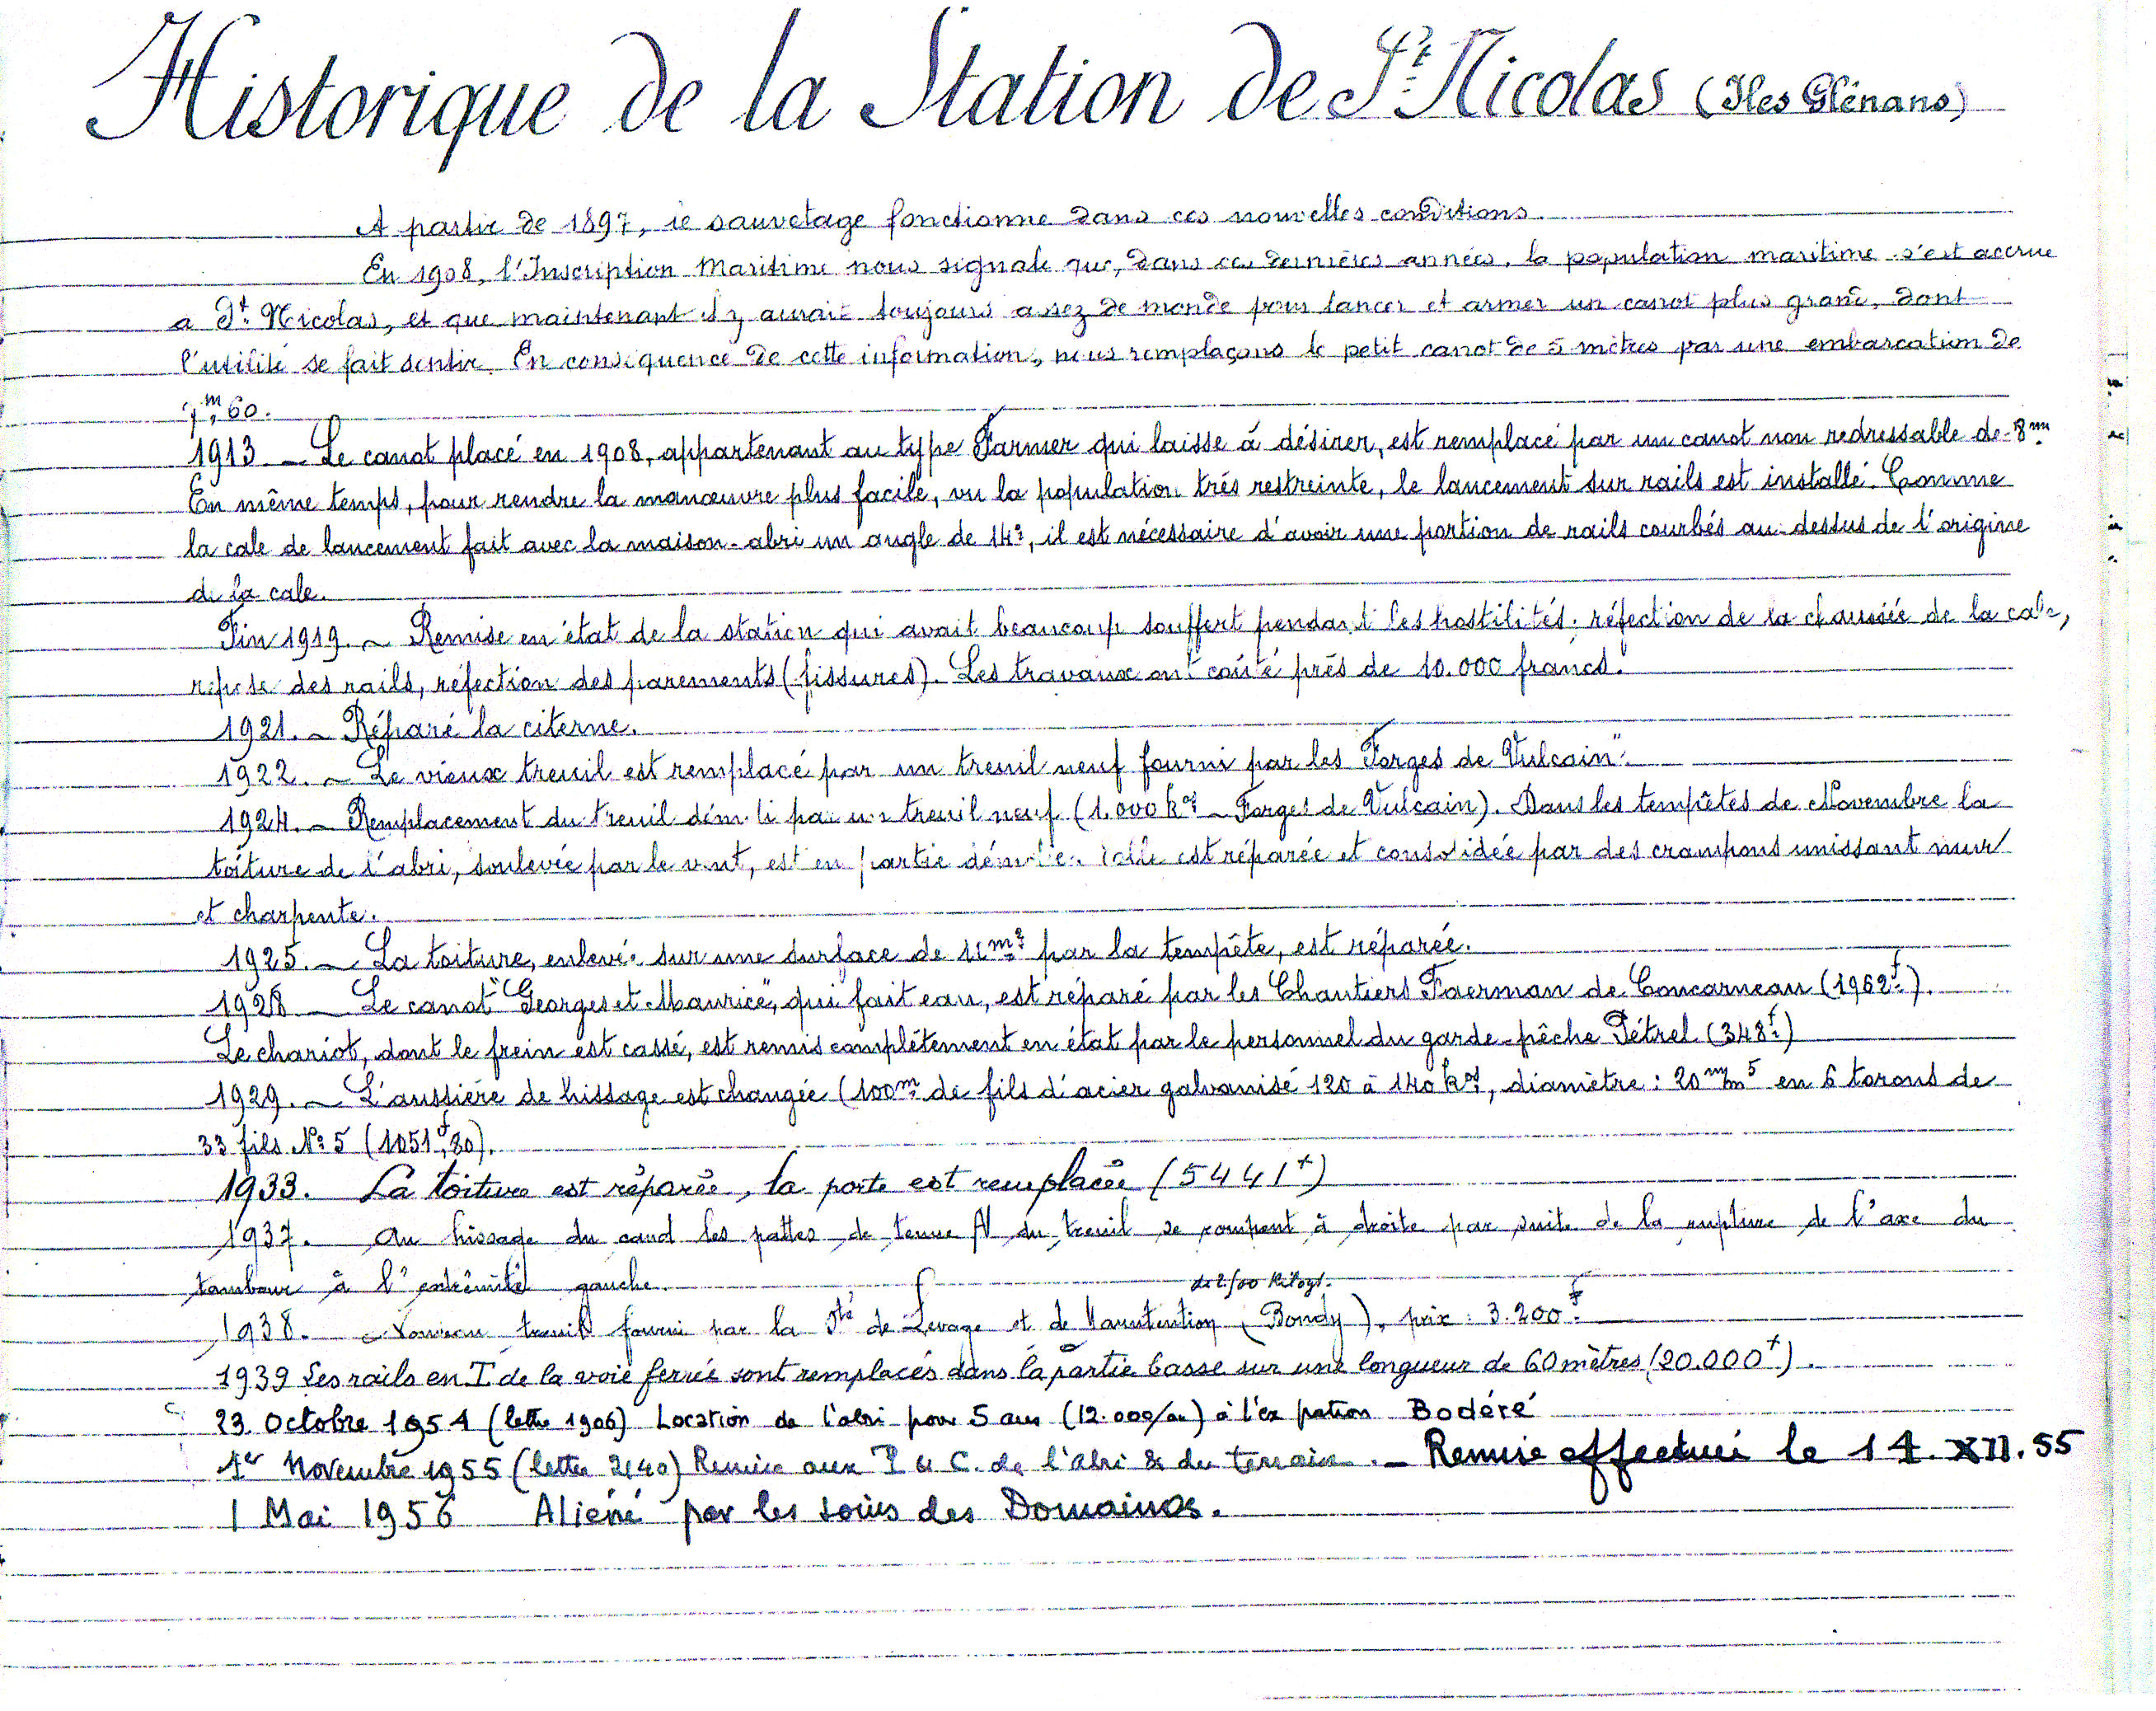 Historique de la Station de St Nicolas (Iles Glénans)
A partir de 1897, le sauvetage fonctionne dans ces nouvelles conditions.
En 1908, l'Inscription Maritime nous signale que, dans ces dernières années, la population maritime s'est accrue
a St Nicolas, et que maintenant il y aurait toujours assez de monde pour lancer et armer un canot plus grand, dont
l'utilité se fait sentir. En conséquence de cette information, nous remplaçons le petit canot de 5 mètres par une embarcation de
7m,60.
1913 _ Le canot placé en 1908, appartenant au type Farmer qui laisse à désirer, est remplacé par un canot non redressable de 8m
En même temps, pour rendre la manœuvre plus facile, vu la population très restreinte, le lancement sur rails est installé. Comme
la cale de lancement fait avec la maison-abri un angle de 14°, il est nécessaire d'avoir une portion de rails courbés au-dessus de l'origine
de la cale.
Fin 1919. ~ Remise en état de la station qui avait beaucoup souffert pendant les hostilités; réfection de la chaussée de la cale,
repose des rails, réfection des parements (fissures). Les travaux ont coûté près de 10.000 francs.
1921. ~ Réparé la citerne.
1922. ~ Le vieux treuil est remplacé par un treuil neuf fourni par les Forges de Vulcain".
1924. ~ Remplacement du treuil démoli par un treuil neuf (1.000 kgs ~ Forges de Vulcain). Dans les tempêtes de Novembre la
toiture de l'abri, soulevée par le vent, est en partie démolie. Elle est réparée et consolidée par des crampons unissant mur
et charpente.
1925. ~ La toiture, enlevée sur une surface de 11 m2 par la tempête, est réparée.
1928 ~ Le canot "Georges et Maurice", qui fait eau, est réparé par les Chantiers Faerman de Concarneau (1962f).
Le chariot, dont le frein est cassé, est remis complètement en état par le personnel du garde-pêche Pétrel (348f)
1929. ~ L'aussière de hissage est changée (100m de fils d'acier galvanisé 120 à 140 kgs, diamètre: 20 m/m 5 en 6 torons de
33 fils N° 5 (1051f,80).
1933. La toiture est réparée, la porte est remplacée (5441f)
1937. Au hissage du canot les pattes de tenue AV du treuil se rompent à droite par suite de la rupture de l'axe du
tambour à l'extrémité gauche.
de 2500 Kilogs.
1938. Nouveau treuil fourni par la Sté de Levage et de Manutention (Bondy), prix: 3.200f
1939 Les rails en I de la voie ferrée sont remplacés dans la partie basse sur une longueur de 60 mètres (20.000f).
23 Octobre 1954 (lettre 1906) Location de l'abri pour 5 ans (12.000/an) à l'ex patron Bodéré
1er Novembre 1955 (lettre 2140) Remise aux P & C. de l'abri & du terrain. _ Remise effectuée le 14. XII. 55
1 Mai 1956 Aliéné par les soins des Domaines.